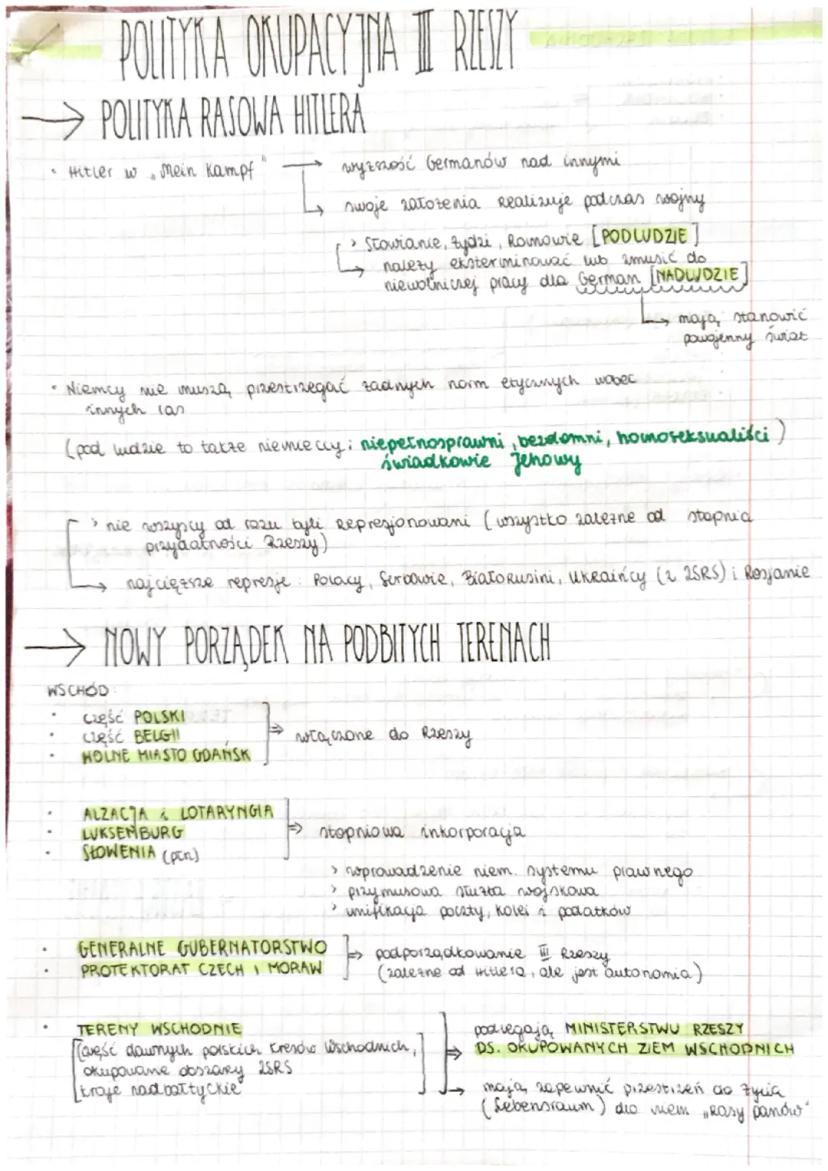 POLITYKA OKUPACYJNA III RZESZY
→ POLITYKA RASOWA HITLERA
• Hitler w „Mein Kampf" → wyższość Germanów nad innymi
↳ swoje założenia realizuje podczas wojny
> Słowianie, Żydzi, Romowie [PODLUDZIE]
↳ należy eksterminować lub zmusić do
niewolniczej pracy dla German [NADLUDZIE]
↳ mają stanowić
powojenny świat
• Niemcy nie muszą przestrzegać żadnych norm etycznych wobec
innych ras
(pod ludzie to także niemieccy: niepełnosprawni, bezdomni, homoseksualiści)
świadkowie Jehowy
> nie wszyscy od razu byli represjonowani (wszystko zależne od stopnia
przydatności Rzeszy)
↳ najcięższe represje: Polacy, Serbowie, Białorusini, Ukraińcy (z ZSRS) i Rosjanie
→ NOWY PORZĄDEK NA PODBITYCH TERENACH
WSCHÓD:
• część POLSKI
• część BELGII ⇒ włączone do Rzeszy
• WOLNE MIASTO GDAŃSK
• ALZACJA i LOTARYNGIA
• LUKSEMBURG ⇒ stopniowa inkorporacja
• SŁOWENIA (płn)
> wprowadzenie niem. systemu prawnego
> przymusowa służba wojskowa
> unifikacja poczty, kolei i podatków
• GENERALNE GUBERNATORSTWO ⇒ podporządkowanie III Rzeszy
• PROTEKTORAT CZECH I MORAW (zależne od Hitlera, ale jest autonomia)
• TERENY WSCHODNIE podlegają MINISTERSTWU RZESZY
[część dawnych polskich kresów wschodnich, ⇒ DS. OKUPOWANYCH ZIEM WSCHODNICH
okupowane obszary ZSRS
kraje nadbałtyckie] → mają zapewnić przestrzeń do życia
(Lebensraum) dla niem „rasy panów"